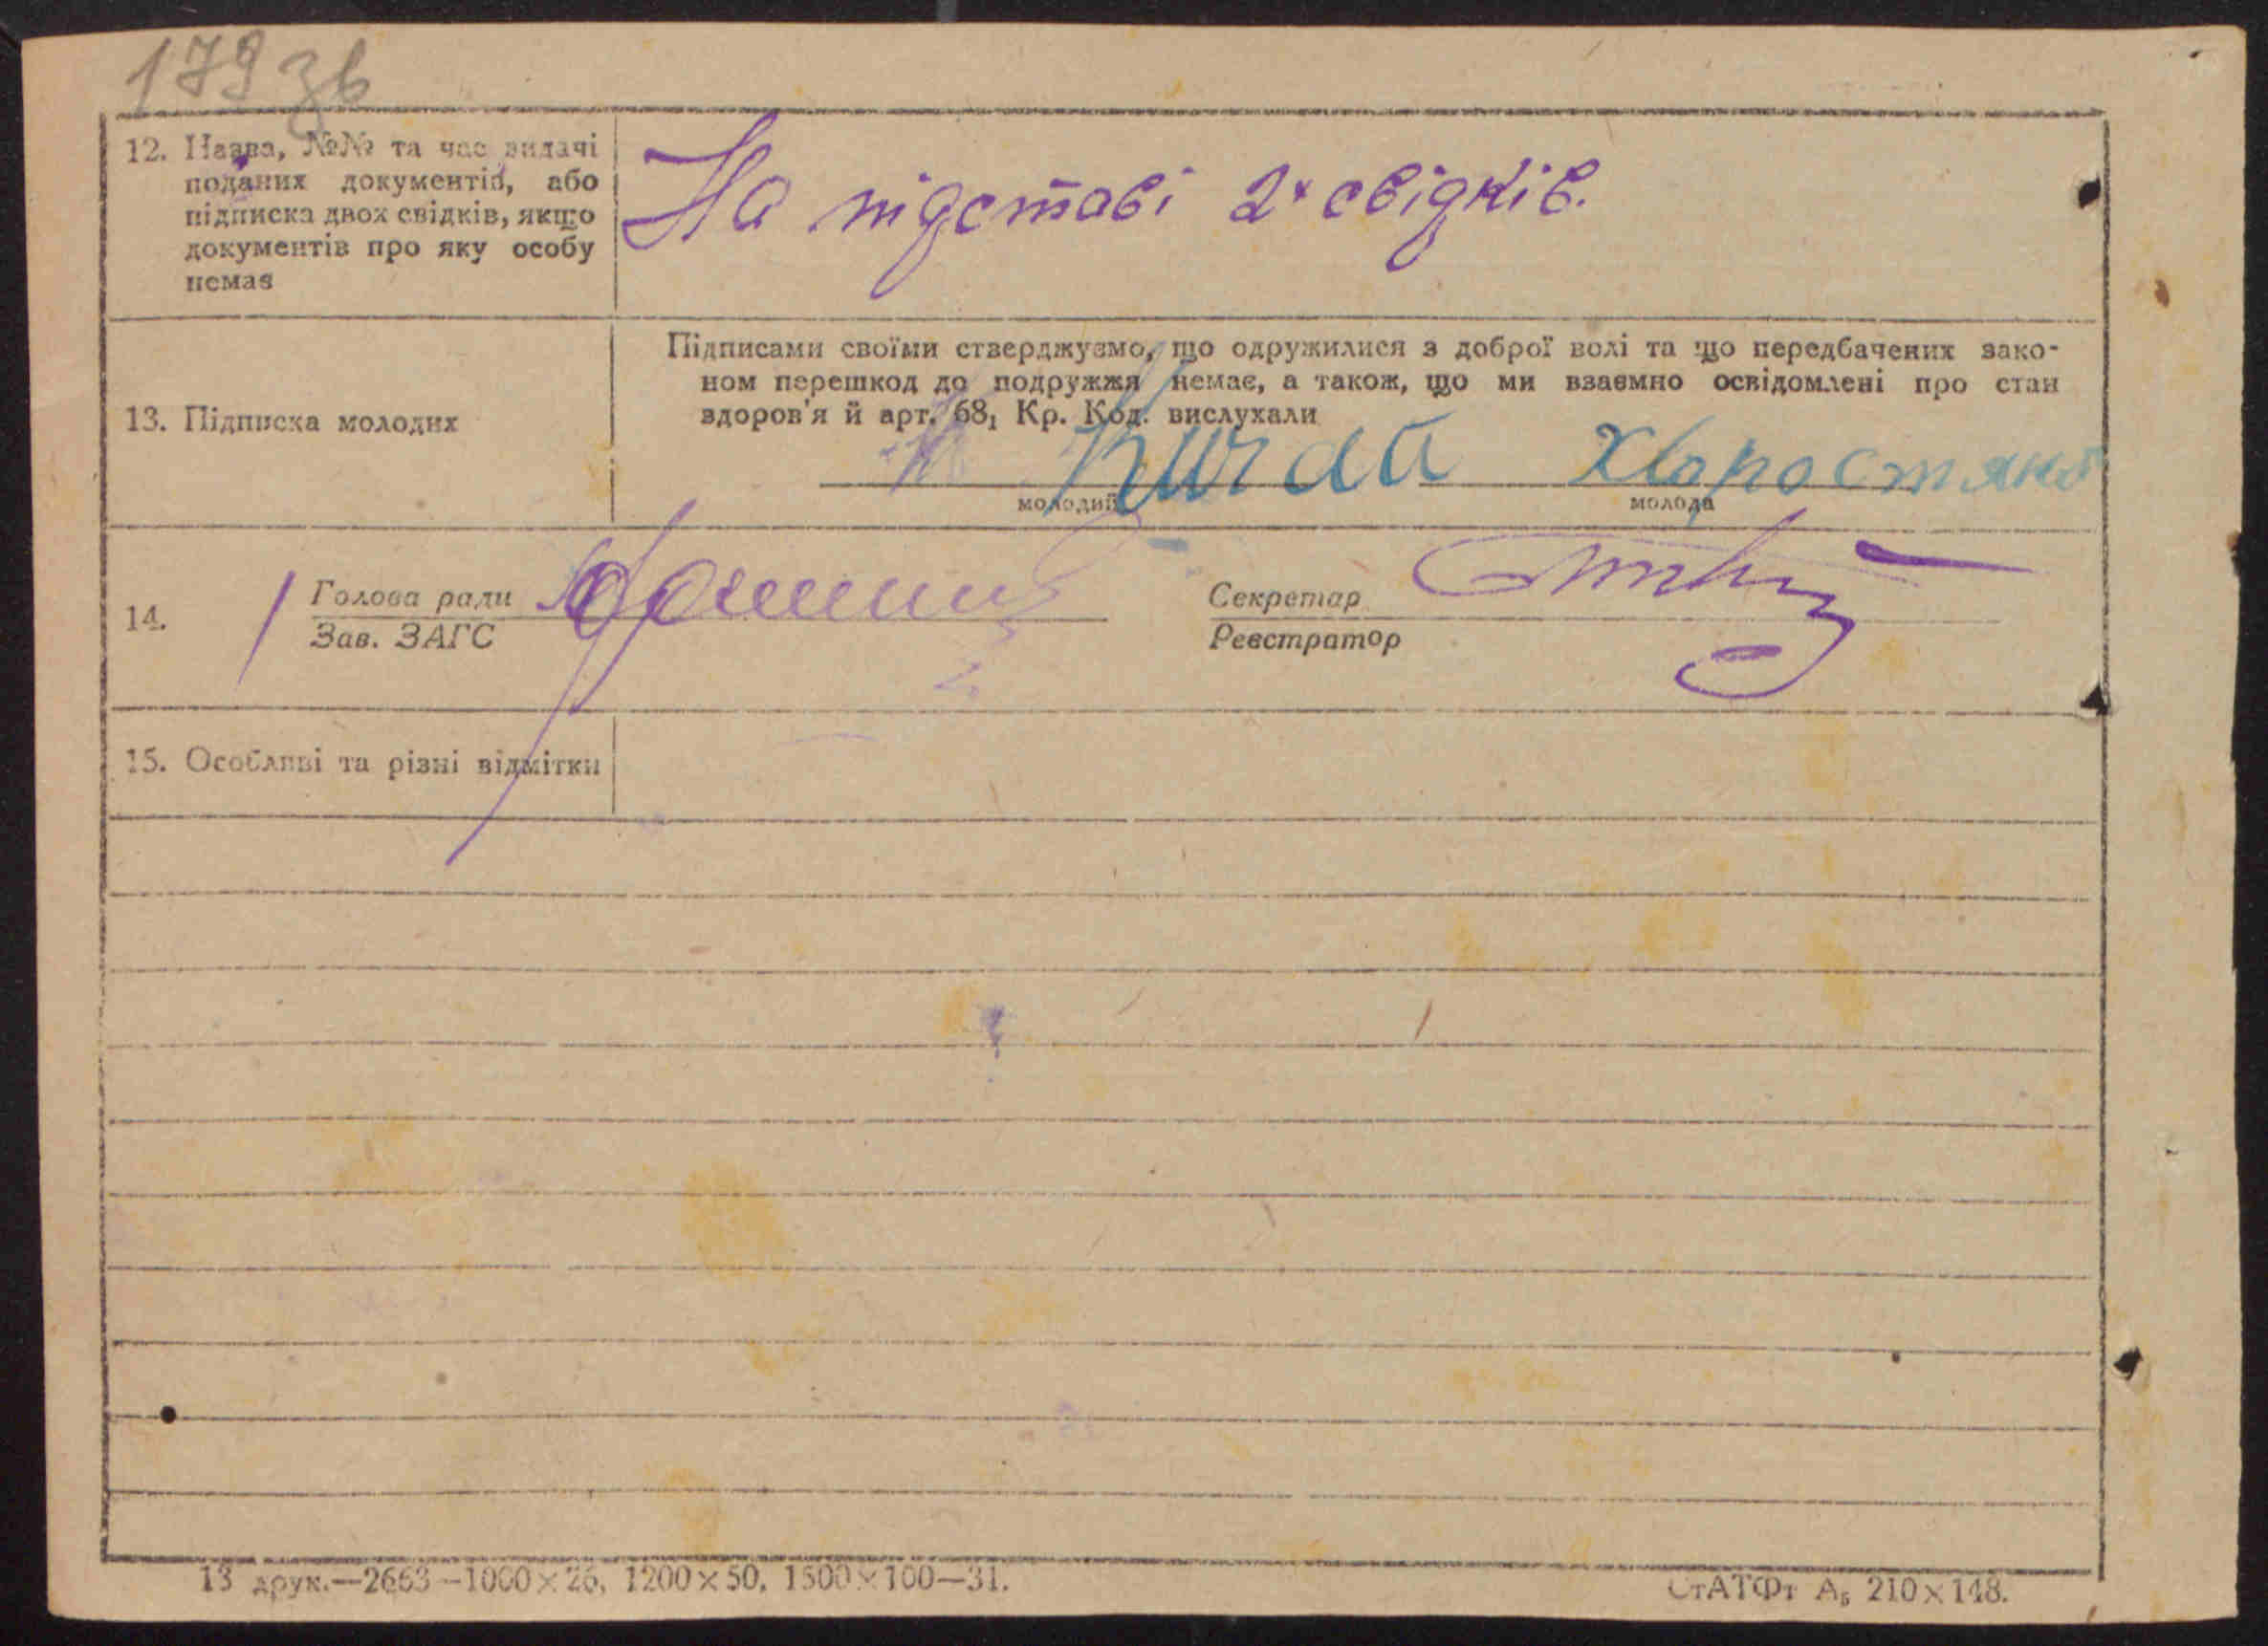 179 зв
12. Назва, №№ та час видачі
поданих документів, або
підписка двох свідків, якщо
документів про яку особу
немає
На підставі 2х свідків.
13. Підписка молодих
Підписами своїми стверджуємо, що одружилися з доброї волі та що передбачених зако-
ном перешкод до подружжя немає, а також, що ми взаємно освідомлені про стан
здоров'я й арт. 68₁ Кр. Код. вислухали
молодий
молода
14.
Голова ради
Зав. ЗАГС
Секретар
Реєстратор
15. Особливі та різні відмітки
13 друк.—2663—1000×26, 1200×50, 1500×100—31.
СтАТФт А₅ 210×148.